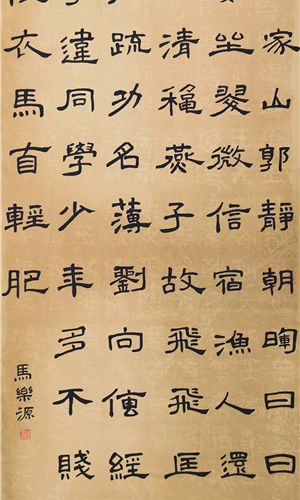 家山郭靜朝暉日日
坐翠微信宿漁人還
清穐燕子故飛飛匡
疏功名薄劉向傳經
違同學少年多不賤
衣馬自輕肥
馬樂源